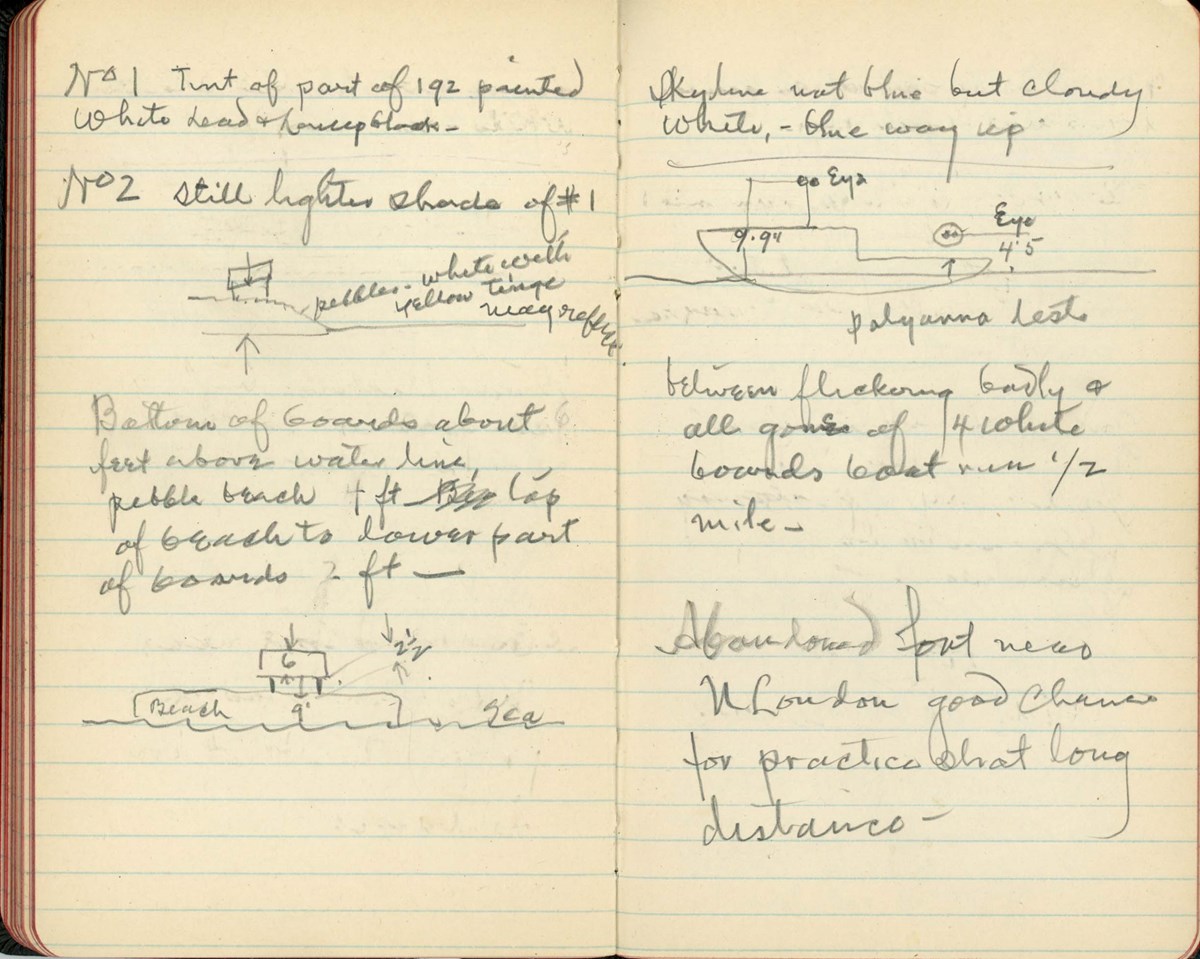 No 1 Tint of part of 192 painted
White Lead & Lampblack -
No 2 Still lighter shade of #1
pebbles - white with
yellow tinge
may reflect
Bottom of boards about 6
feet above water line,
pebble beach 4 ft top
of beach to lower part
of boards 2 ft —
6
2 1/2
Beach 9' Sea
Skyline not blue but cloudy
White, - blue way up
Eye
9.94
Eye
4'5
polyanna tests
between flickering badly &
all gone of 14 white
boards boat run 1/2
mile -
Abandoned fort near
N London good chance
for practice shot long
distance -